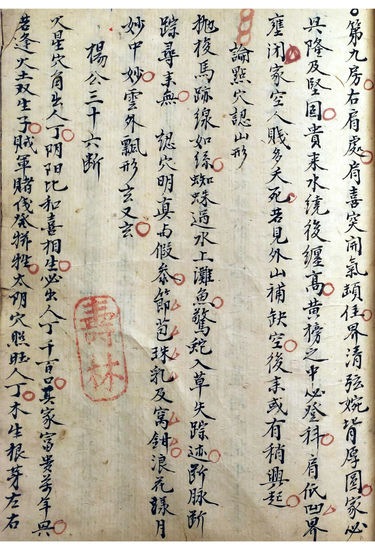 第九房右肩處肩喜突開氣頓住界清弦婉背厚圓家必
興隆及堅固貴來水繞後纏高黃榜之中必登科肩低凹界
壅閉家空人賤多夭死若見外山補缺空後來或有稍興起
論點穴認山形
拋梭馬跡線如絲蜘蛛過水上灘魚驚蛇入草失踪迹斷脉斷
踪尋來無 認穴明真與假參節苞珠乳及窩鉗浪花樣月
妙中妙雲外飄形玄又玄
楊公三十六斷
火星穴角出人丁阴阳比和喜相生必出人丁千百口其家富貴萬年興
若逢火土双生子賊軍賭伐發牲太阴穴照旺人丁木生根芽左右
壽林